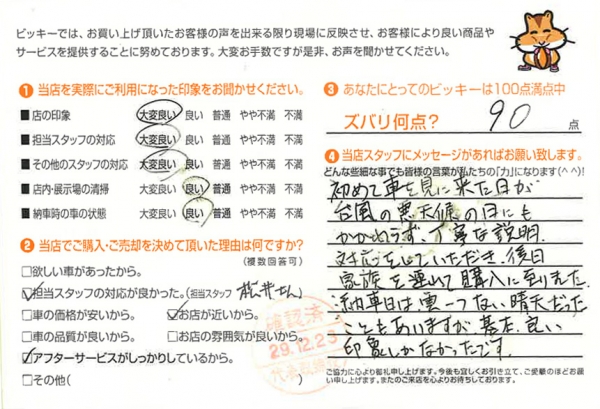 ビッキーでは、お買い上げ頂いたお客様の声を出来る限り現場に反映させ、お客様により良い商品や
サービスを提供することに努めております。大変お手数ですが是非、お声を聞かせてください。
1 当店を実際にご利用になった印象をお聞かせください。
■ 店の印象 大変良い 良い 普通 やや不満 不満
■ 担当スタッフの対応 大変良い 良い 普通 やや不満 不満
■ その他のスタッフの対応 大変良い 良い 普通 やや不満 不満
■ 店内・展示場の清掃 大変良い 良い 普通 やや不満 不満
■ 納車時の車の状態 大変良い 良い 普通 やや不満 不満
2 当店でご購入・ご売却を決めて頂いた理由は何ですか?
(複数回答可)
□欲しい車があったから。
☑担当スタッフの対応が良かった。(担当スタッフ 松井さん)
□車の価格が安いから。 ☑お店が近いから。
□車の品質が良いから。 □お店の雰囲気が良いから。
☑アフターサービスがしっかりしているから。
□その他( )
確認済
29.12.23
3 あなたにとってのビッキーは100点満点中
ズバリ何点? 90 点
4 当店スタッフにメッセージがあればお願い致します。
どんな些細な事でも皆様の言葉が私たちの「力」になります(^^)!
初めて車を見に来た日が
台風の悪天候の日にも
かかわらず、丁寧な説明、
対応をしていただき、後日
家族を連れて購入に至りました。
納車日は、雲一つない晴天だった
こともありますが、基本、良い
印象しかなかったです。
ご協力に心より御礼申し上げます。今後も宜しくお引き立て、ご愛顧のほどお願
い申し上げます。またのご来店を心よりお待ちしております。